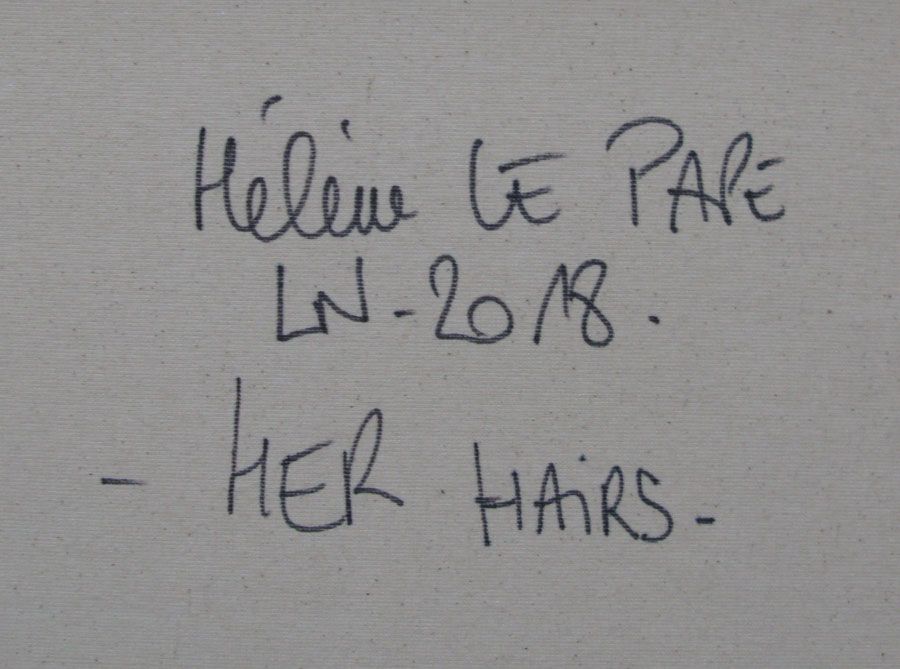 Hélène LE PAPE
LN-2018.
- HER HAiRS-